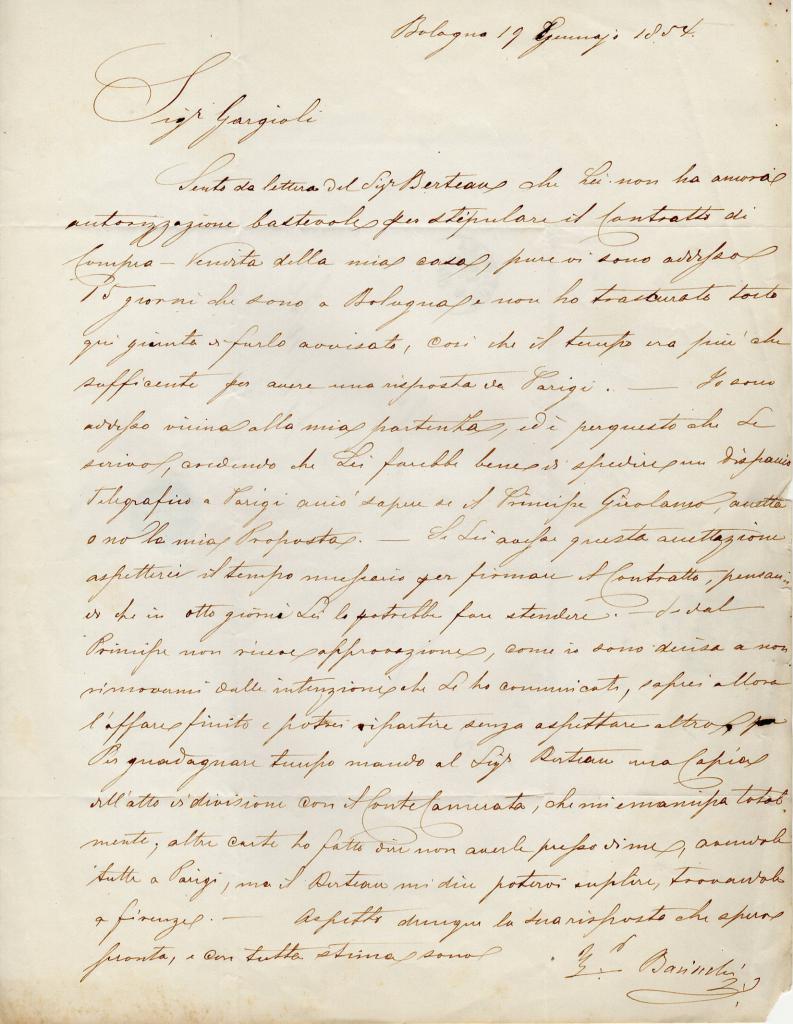 Bologna 19 Gennajo 1854.
Sigr Gargioli
Sento da lettera del Sigr Berteau che Lei non ha ancora
autorizzazione bastevole per stipulare il Contratto di
Compra-Vendita della mia casa, pure vi sono adesso
15 giorni che sono a Bologna e non ho trascurato tosto
qui giunta di farlo avvisato, così che il tempo era più che
sufficente per avere una risposta da Parigi. — Io sono
adesso vicina alla mia partenza, ed è perquesto che Le
scrivo, credendo che Lei farebbe bene di spedire un dispaccio
Telegrafico a Parigi acciò sapere se il Principe Girolamo, accetta
o nò la mia Proposta. — Se Lei avesse questa accettazione
aspetterei il tempo necessario per firmare il Contratto, pensan
do che in otto giorni Lei lo potrebbe fare stendere. — Se dal
Principe non riceve approvazione, come io sono decisa a non
rimovermi dalle intenzioni che Le ho comunicate, saprei allora
l'affare finito e potrei ripartire senza aspettare altro,
Per guadagnare tempo mando al Sigr Berteau una Copia
dell'atto di divisione con il Conte Camerata, che mi emancipa total
mente, altre carte ho fatto dire non averle presso di me, avendole
tutte a Parigi, ma il Berteau mi dice potervi suplire, trovandole
a firenze. — Aspetto dunque la sua risposta che spero
pronta, e con tutta stima sono